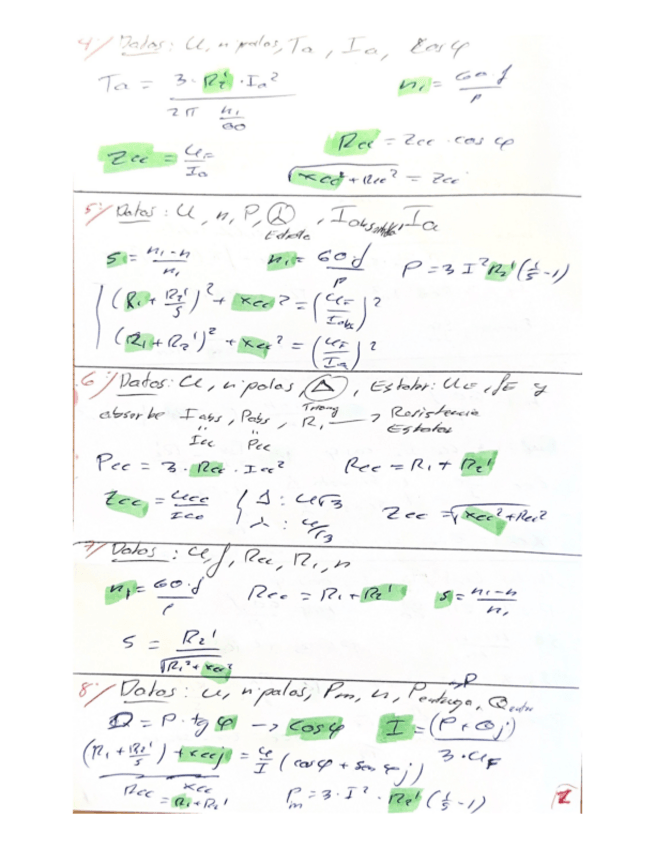 4:/ Datos: U, n polos, Ta, Ia, cos φ
Ta = 3·R2'·Ia² / 2π n1/60
n1 = 60·f/p
Zcc = UF/Ia
Rcc = Zcc · cos φ
√(Xcc² + Rcc²) = Zcc
5:/ Datos: U, n, P, Y, Iabsorbida, Ia
Estrella
S = n1-n/n1
n1 = 60·f/p
P = 3 I² R2' (1/S - 1)
(R1 + R2'/S)² + Xcc² = (UF/Iabs)²
(R1 + R2')² + Xcc² = (UF/Ia)²
6:/ Datos: U, n polos, Δ, Estator: UE, fE y
Triang
absorbe Iabs, Pabs, R1 → Resistencia
Estator
Icc Pcc
Pcc = 3·Rcc·Icc²
Rcc = R1 + R2'
Zcc = Ucc/Icc
Δ: U√3
Y: U/√3
Zcc = √(Xcc² + Rcc²)
7/ Datos: U, f, Rcc, R1, n
n1 = 60·f/p
Rcc = R1 + R2'
S = n1-n/n1
S = R2'/√(R1² + Xcc²)
8:/ Datos: U, n polos, Pm, n, Pentrega, Qentre
→P
Q = P·tg φ → cos φ
I = (P+Qj)/3·UF
(R1 + R2'/S) + Xccj = U/I (cos φ + sen φ j)
Rcc Xcc
= R1 + R2'
Pm = 3·I²·R2' (1/S - 1)